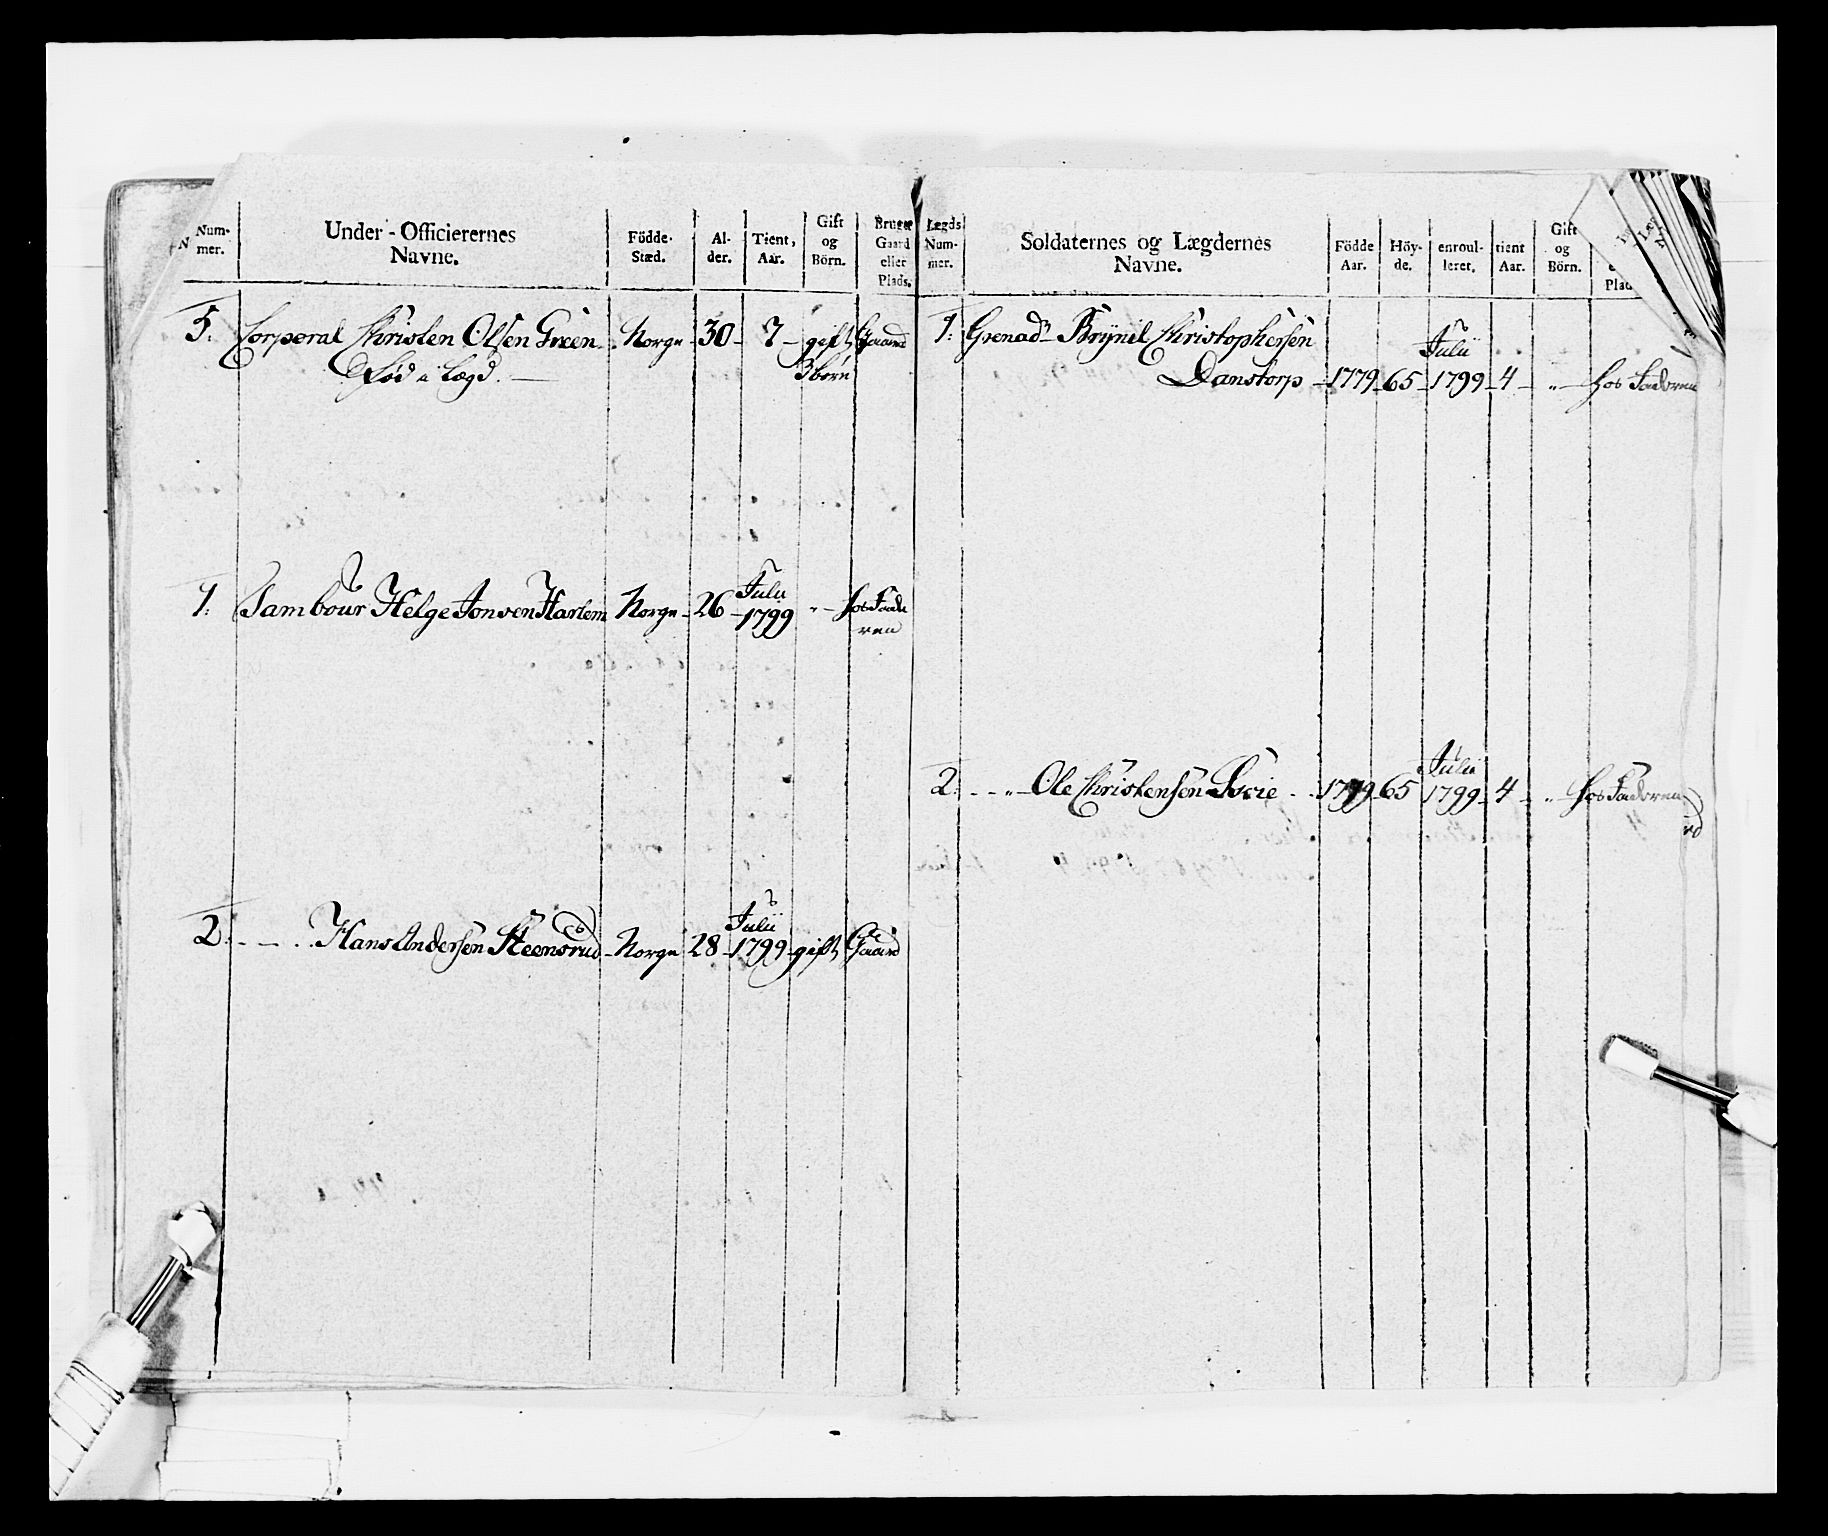 Num-
mer.
Under-Officierernes
Navne.
Födde-
Stæd.
Al-
der.
Tient,
Aar.
Gift
og
Börn.
Bruger
Gaard
eller
Plads.
5: Corporal Christen Olsen Green Norge 30 7 gift Gaard
Död a Lægd. 3 börn
1: Tambour Helge Jonsen Harlem Norge 26 Julii 1799 " hos Fade
ren
2: Hans Andersen Steensrud Norge 28 Julii 1799 gift Gaard
Lægds
Num-
mer.
Soldaternes og Lægdernes
Navne.
Födde
Aar.
Höy-
de.
enroul-
leret.
tient
Aar.
Gift
og
Börn.
Plad
1: Grenad Brynil Christophersen Julii
Danstorp 1779 65 1799 4 " hos Faderen
2: " Ole Christensen 1779 65 Julii 1799 4 " hos Faderen